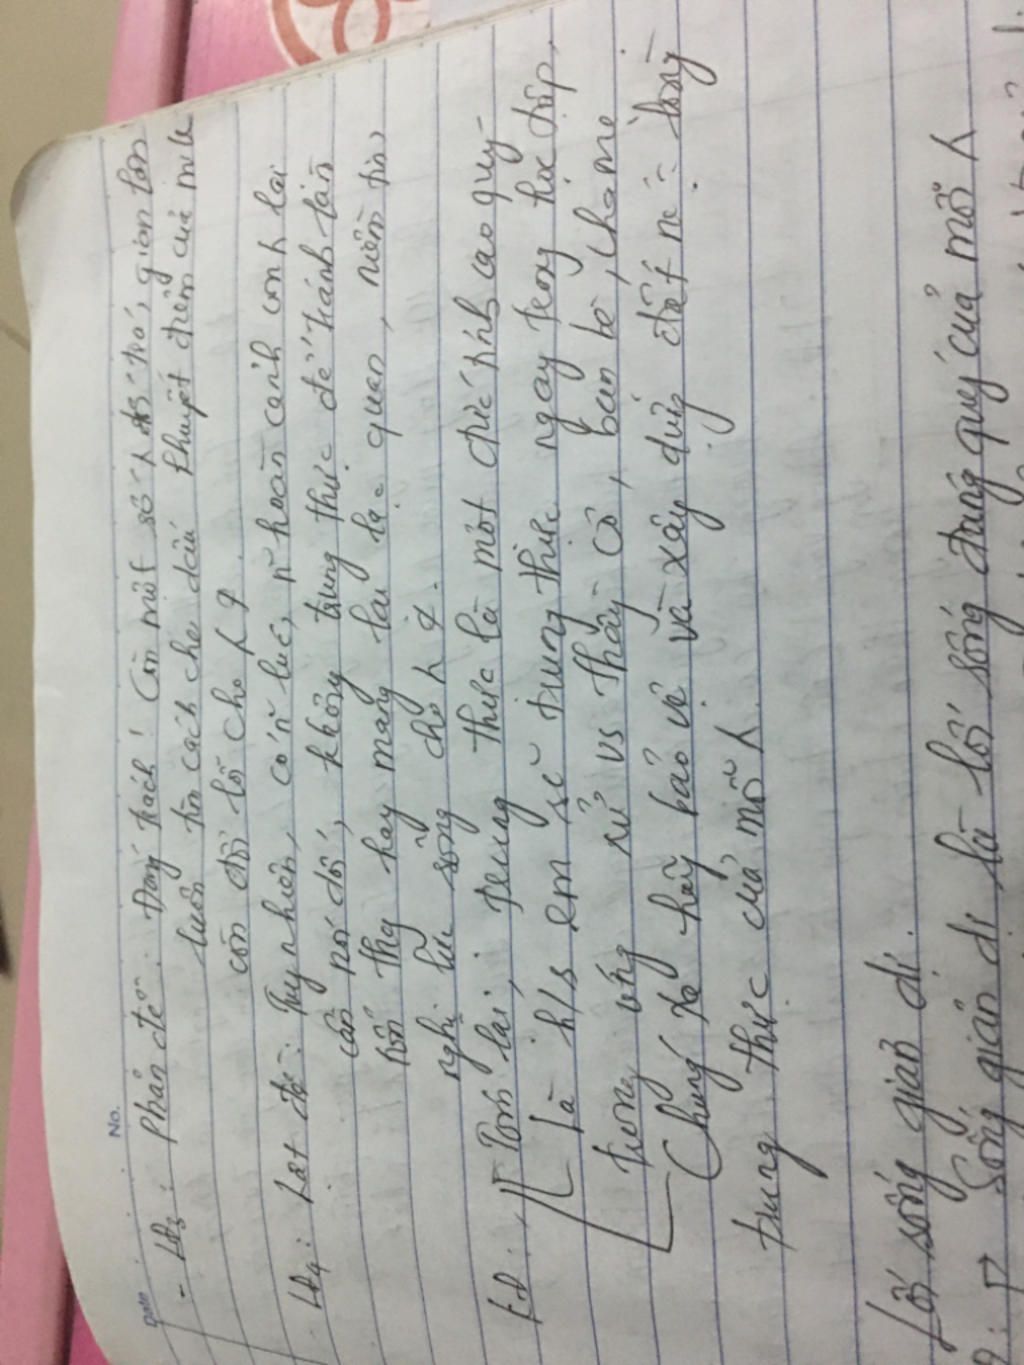 Date No.
- Lđ3: Phản đề: Đáng trách! Còn một số λ dối trá, gian lận
luôn tìm cách che dấu khuyết điểm của mình
còn đổ lỗi cho λ ≠.
Lđ4: Lật đề: Tuy nhiên, có n~ lúc, n~ hoàn cảnh con λ lại
cần nói dối, không trung thực để tránh tổn
thay hay mang lại lạc quan, niềm tin
nghị lực sống cho λ ≠.
Kđ: Tóm lại, trung thực là một đức tính cao quý
Là h/s em sẽ trung thực ngay trong học tập,
trong ứng xử vs thầy cô, bạn bè, cha mẹ
Chúng ta hãy bảo vệ và xây dựng đất nc = lòng
trung thực của mỗi λ.
Lối sống giản dị.
Sống giản dị là lối sống đáng quý của mỗi λ